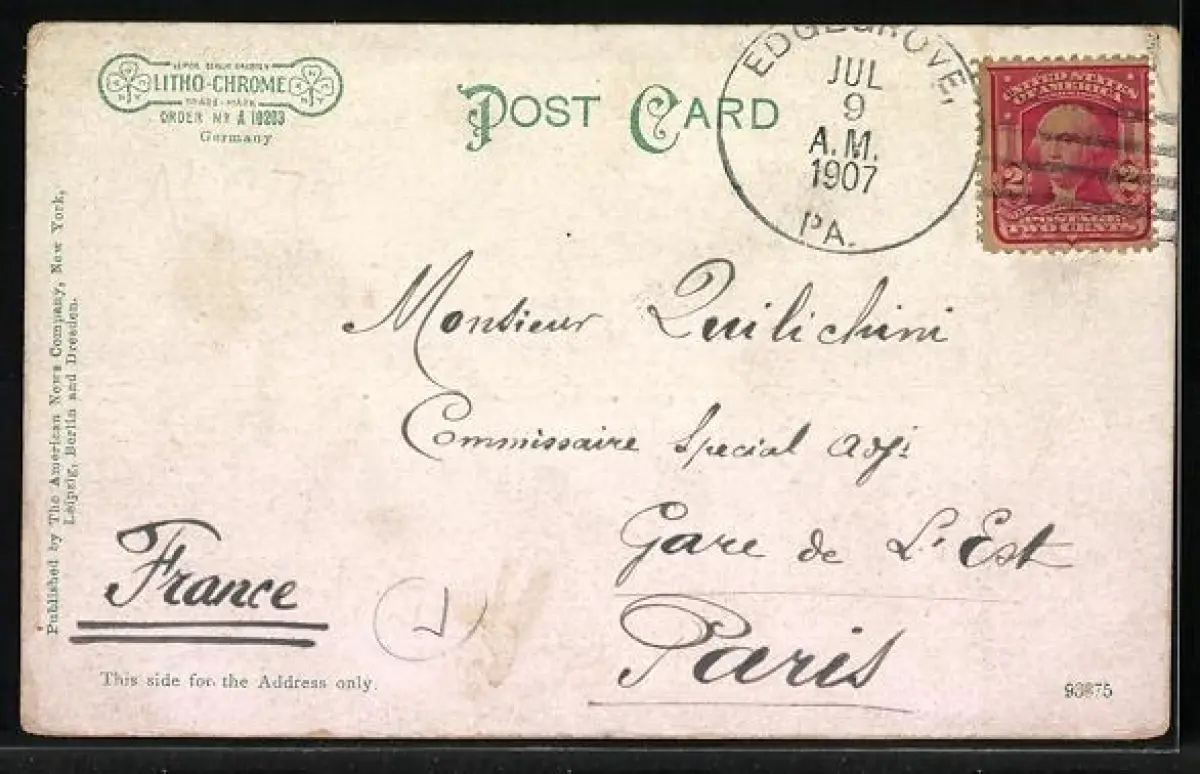 LITHO-CHROME
TRADE-MARK
ORDER Nº A 10203
Germany
POST CARD
EDGEGROVE,
JUL
9
A.M.
1907
PA.
UNITED STATES
OF AMERICA
2 2
POSTAGE
TWO CENTS
Published by The American News Company, New York,
Leipzig, Berlin and Dresden.
Monsieur Quilichini
Commissaire Special adj.
Gare de L'Est
Paris
France
This side for the Address only.